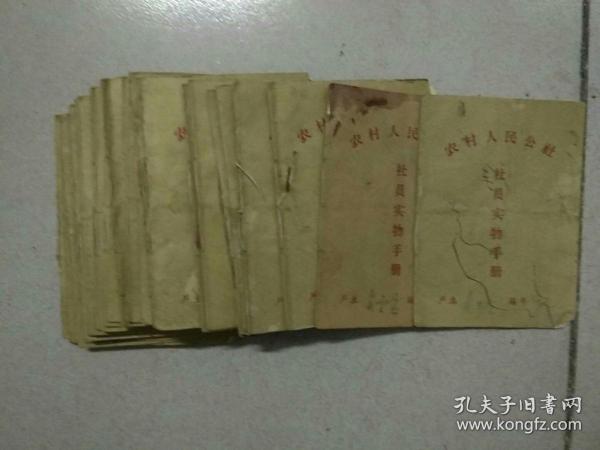 农村
农村人民
社员实物手册
户主
农村人民公社
社员实物手册
户主 编号
孔夫子旧书网
www.kongfz.com